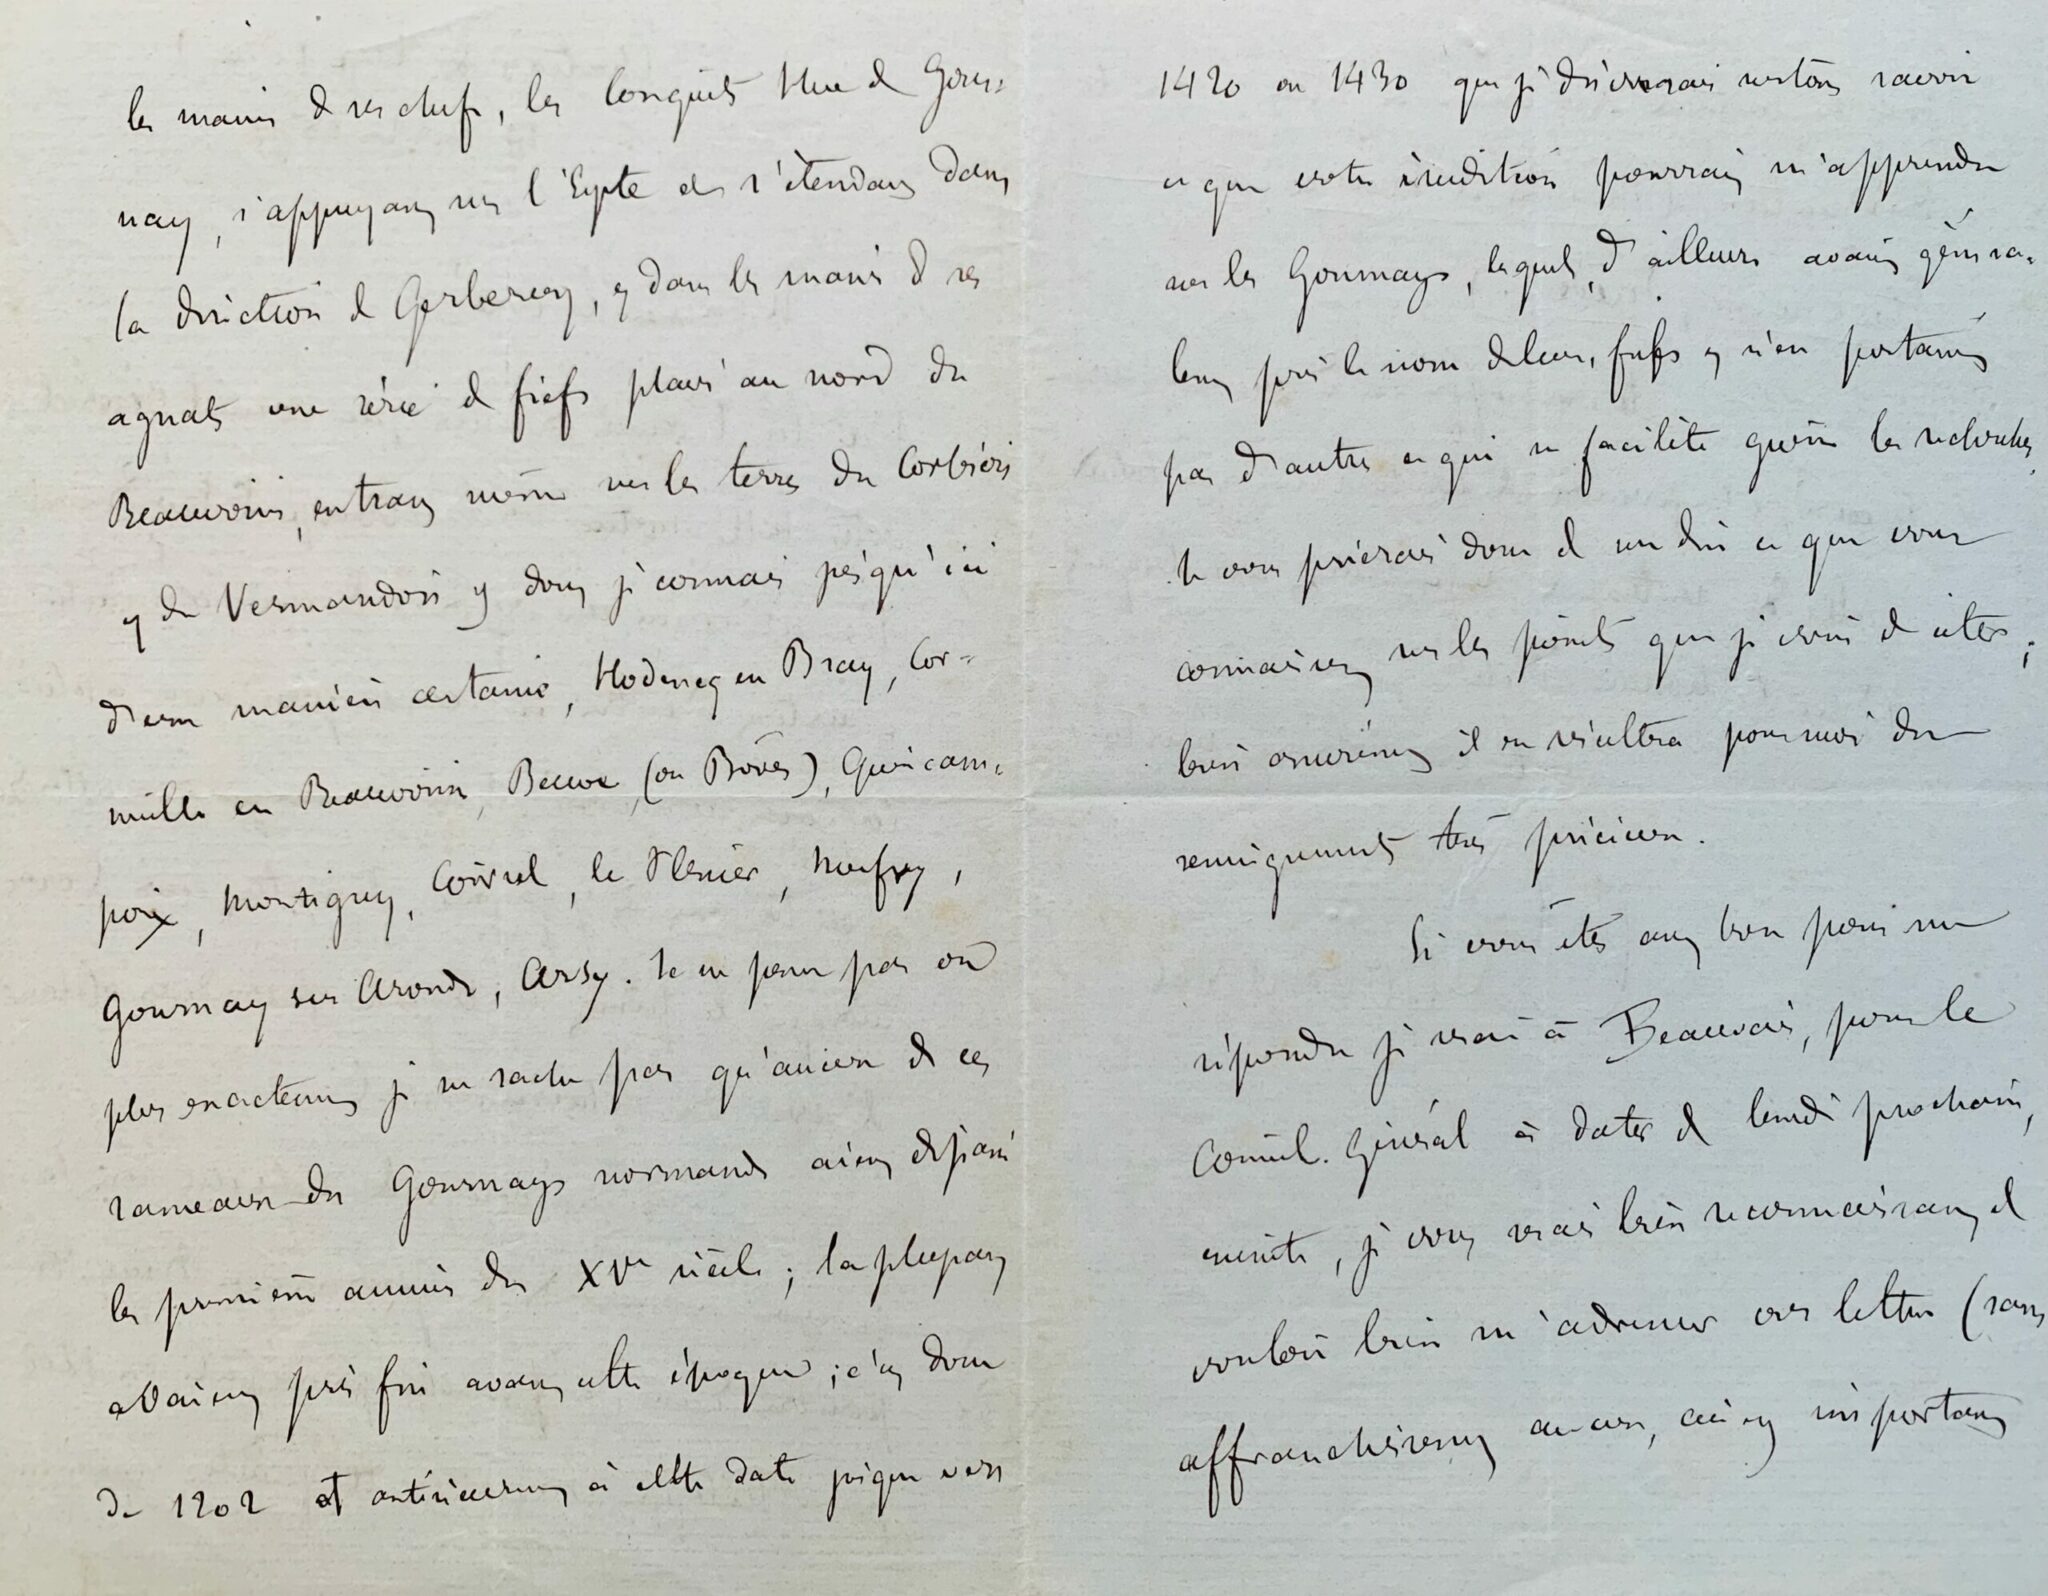 les mains de ses chefs, les Conquêts Hue de Gour-
nay, s'appuyant sur l'Epte et s'étendant dans
la direction de Gerberoy, et dans les mains de ses
agnats une série de fiefs placés au nord du
Beauvoisis, entrant même sur les terres du Corbiois
et du Vermandois et dont je connais jusqu'ici
d'une manière certaine, Hodencq en Bray, Cor-
meille en Beauvoisis, Beuve (ou Boves), Quincam-
poix, Montigny, Coivrel, le Plessier, Neufvy,
Gournay sur Aronde, Arsy. Je ne pense pas ou
plus exactement je ne sache pas qu'aucun de ces
rameaux des Gournays normands aient dépassé
les premières années du XVe siècle ; la plupart
avaient pris fin avant cette époque ; c'est donc
de 1202 et antérieurement à cette date jusque vers
1420 ou 1430 que je désirerais surtout savoir
ce que votre érudition pourrait m'apprendre
sur les Gournays, lesquels, d'ailleurs avaient généra-
lement pris le nom de leurs fiefs et n'en portaient
pas d'autres ce qui ne facilite guère les recherches.
Je vous prierais donc de me dire ce que vous
connaissez sur les points que je viens de citer ;
bien assurément il en résultera pour moi des
renseignements très précieux.
Si vous êtes assez bon pour me
répondre je serai à Beauvais, pour le
Conseil Général à dater de lundi prochain,
ensuite, je vous serais bien reconnaissant de
vouloir bien m'adresser vos lettres (sans
affranchissement aucun, ceci est important